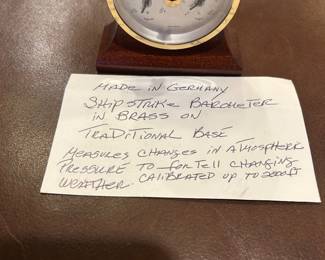 MADE IN GERMANY
SHIP STRIKE BAROMETER
IN BRASS ON
TRADITIONAL BASE
MEASURES CHANGES IN ATMOSPHERR
PRESSURE TO FORTELL CHANGING
WEATHER. CALIBRATED UP TO 2000ft